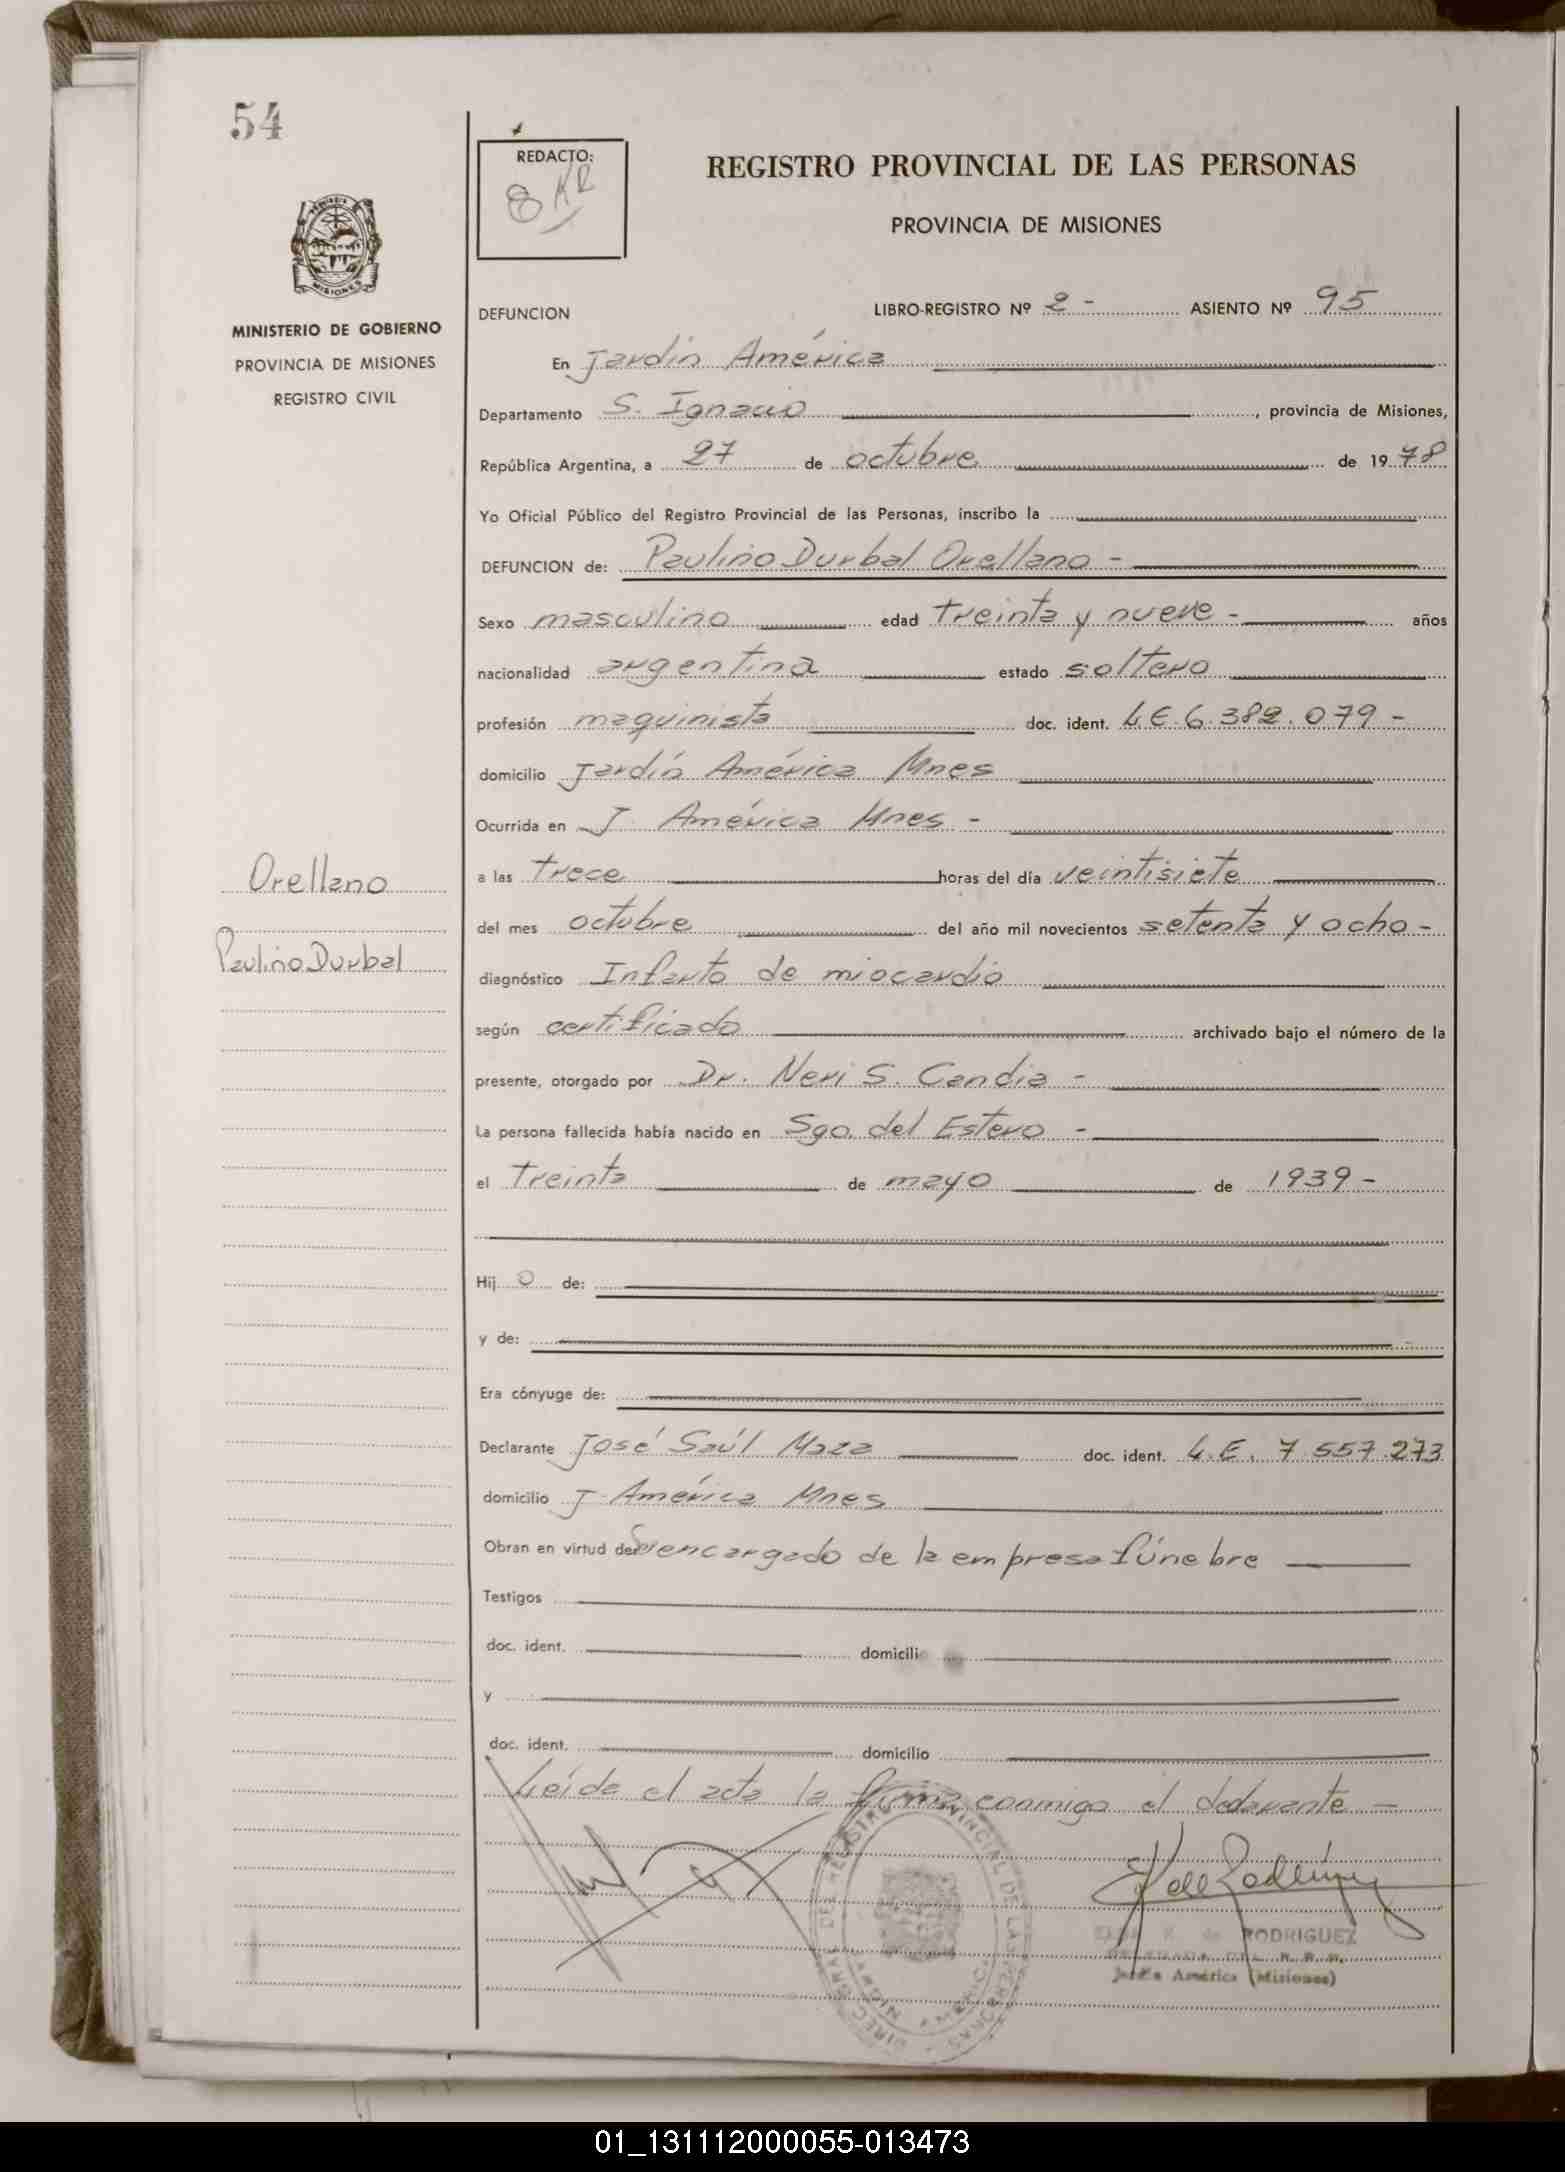 54
REDACTO:
REGISTRO PROVINCIAL DE LAS PERSONAS
PROVINCIA DE MISIONES
MISIONES
MINISTERIO DE GOBIERNO
PROVINCIA DE MISIONES
REGISTRO CIVIL
DEFUNCION LIBRO-REGISTRO Nº 2 - ASIENTO Nº 95
En Jardín América
Departamento S. Ignacio, provincia de Misiones,
República Argentina, a 27 de octubre de 1978
Yo Oficial Público del Registro Provincial de las Personas, inscribo la
DEFUNCION de: Paulino Durbal Orellano -
Sexo masculino edad treinta y nueve - años
nacionalidad argentina estado soltero
profesión maquinista doc. ident. L E 6.382.079 -
domicilio Jardín América Mnes
Ocurrida en J. América Mnes -
Orellano
Paulino Durbal
a las trece horas del día veintisiete
del mes octubre del año mil novecientos setenta y ocho -
diagnóstico Infarto de miocardio
según certificado archivado bajo el número de la
presente, otorgado por Dr. Neri S. Candia -
La persona fallecida había nacido en Sgo. del Estero -
el treinta de mayo de 1939 -
Hij o de:
y de:
Era cónyuge de:
Declarante José Saúl Maza doc. ident. L.E. 7.557.273
domicilio J. América Mnes
Obran en virtud de Ser encargado de la empresa fúnebre
Testigos
doc. ident. domicilio
y
doc. ident. domicilio
Leída el acta la firma conmigo el declarante -
RODRIGUEZ
Jardín América (Misiones)
01_131112000055-013473